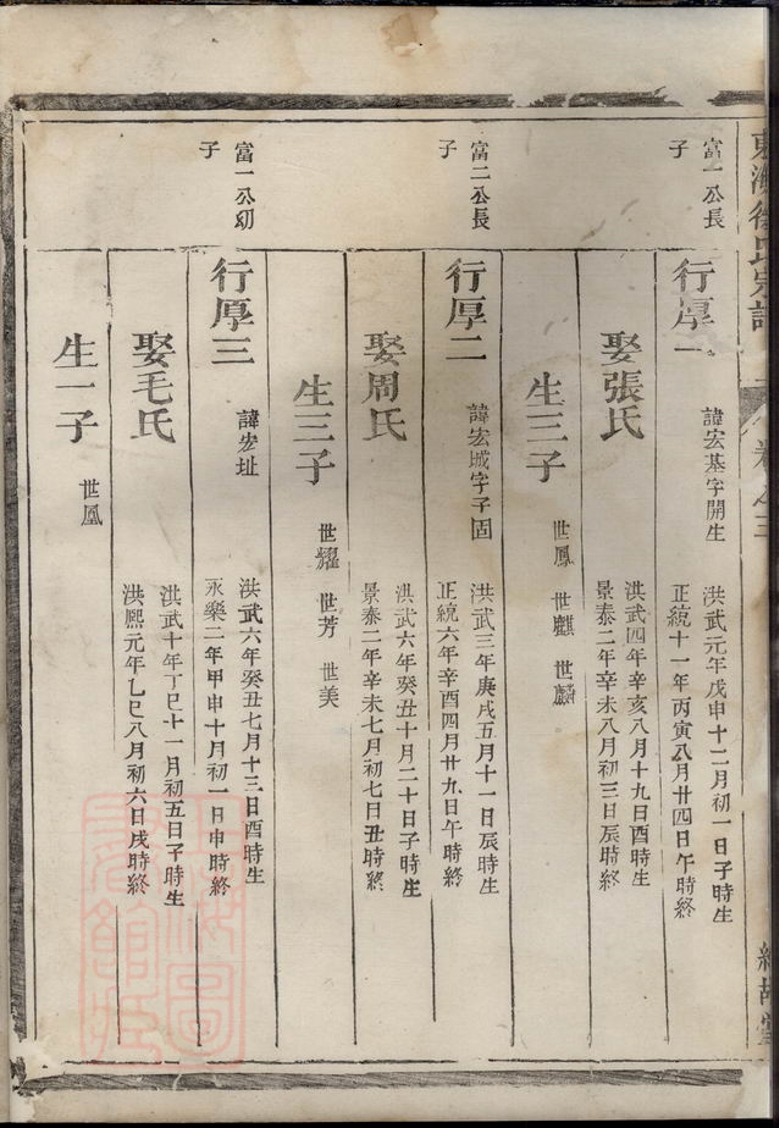 東海徐氏宗譜
卷之三
富一公長
子
行厚一
諱宏基字開生
洪武元年戊申十二月初一日子時生
正統十一年丙寅八月廿四日午時終
娶張氏
洪武四年辛亥八月十九日酉時生
景泰二年辛未八月初三日辰時終
生三子
世鳳 世麒 世麟
富二公長
子
行厚二
諱宏城字子固
洪武三年庚戌五月十一日辰時生
正統六年辛酉四月廿九日午時終
娶周氏
洪武六年癸丑十月二十日子時生
景泰二年辛未七月初七日丑時終
生三子
世耀 世芳 世美
富一公幼
子
行厚三
諱宏址
洪武六年癸丑七月十三日酉時生
永樂二年甲申十月初一日申時終
娶毛氏
洪武十年丁巳十一月初五日子時生
洪熙元年乙巳八月初六日戌時終
生一子
世凰